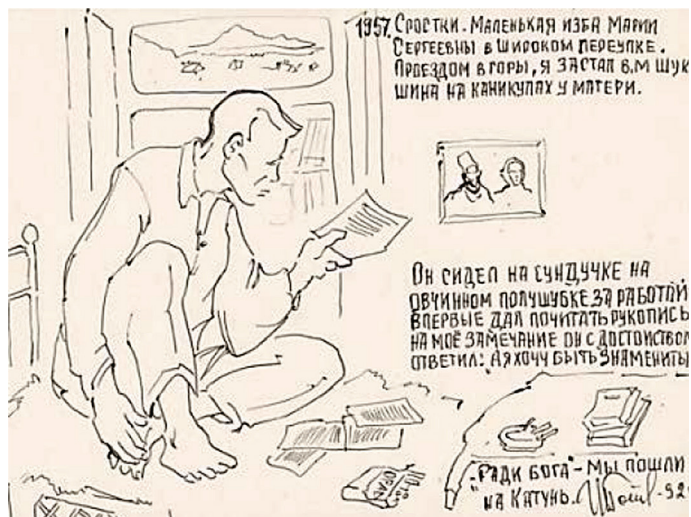 1957. СРОСТКИ. МАЛЕНЬКАЯ ИЗБА МАРИИ
СЕРГЕЕВНЫ В ШИРОКОМ ПЕРЕУЛКЕ.
ПРОЕЗДОМ В ГОРЫ, Я ЗАСТАЛ В.М ШУК
ШИНА НА КАНИКУЛАХ У МАТЕРИ.
ОН СИДЕЛ НА СУНДУЧКЕ НА
ОВЧИННОМ ПОЛУШУБКЕ ЗА РАБОТОЙ
ВПЕРВЫЕ ДАЛ ПОЧИТАТЬ РУКОПИСЬ
НА МОЁ ЗАМЕЧАНИЕ ОН С ДОСТОИНСТВОМ
ОТВЕТИЛ: А Я ХОЧУ БЫТЬ ЗНАМЕНИТЫ
-"РАДИ БОГА"- МЫ ПОШЛИ
НА КАТУНЬ. -92